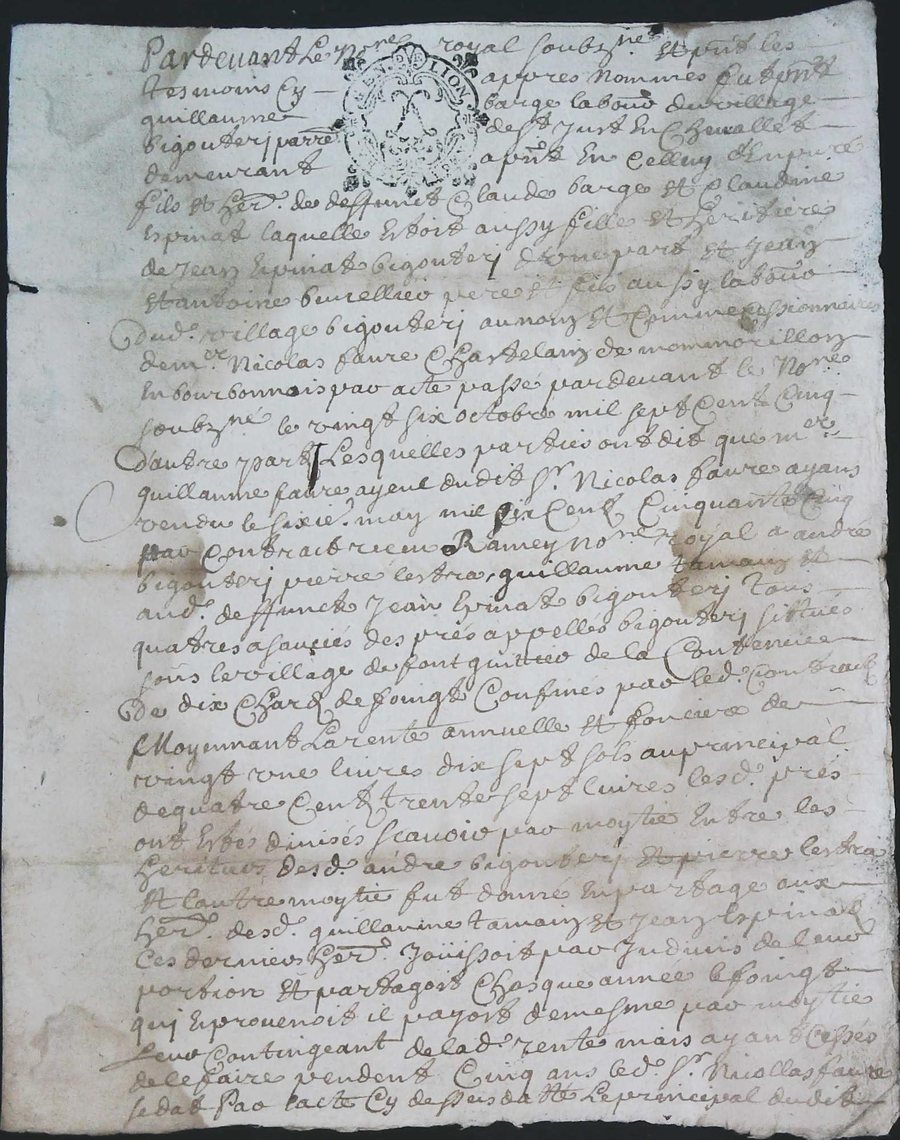 Pardevant Le No.re royal soubz.né Et pnt les
tesmoins Cy
appres nommes fut pnt
guillaume
barge labou.r du village
bigouterj parre
de st Just En Chevallet
demeurant
apnt En Celluy d'Enpuré
GEN LION
fils Et her. de deffunct Claude barge Et Claudine
Espinat laquelle Estoit aussy fille Et heritiere
de Jean Espinat bigouterj d'une part Et Jean
Et antoine pere Et fils aussy labou.r
dud. village bigouterj au nom Et Comme Cessionnaires
de m.er Nicolas faure Chastelain de mommorillon
En bourbonnois par acte passé pardevant le No.re
soubz.né le vingt six octobre mil sept Cent Cinq
d'autre part Lesquelles parties ont dit que m.er
guillaume faure ayeul dudit S.r Nicolas faure ayans
vendu le sixie. may mil six Cent Cinquante Cinq
par Contrait receu Ramey No.re royal a andre
bigouterj pierre lestra guillaume tamain Et
aud. deffunct Jean Espinat bigouterj tous
quatres asauciés des prés appellés bigouterj sittués
sous le village de de la Contenüe
De dix Chard de foingt Confinés par led. Contract
Moyennant La rente annuelle Et fonciere de
vingt vne livres dix sept sols au principal
de quatre Cent trente sept livres lesd. prés
ont Estés divisés scavoir par moytié Entre les
heritiers desd. andre bigouterj Et pierre lestra
Et lautre moytie fut donné En partage aux
her. desd. guillaume tamain Et Jean Espinat
Ces derniers her. Joüissoit par Indivis de leur
portion Et partagoit Chasque année le foingt
quj Enprovenoit il payoit demesme par moytie
leur Contingeant de lad. rente mais ayant Cessés
de le faire pendent Cinq ans led. S.r Nicollas faure
se dat Par lacte Cy dessus datté Le principal dudit